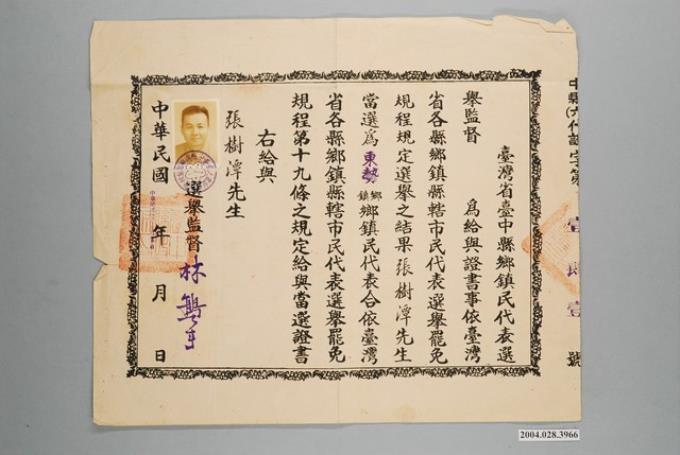 中縣(六)代証字第 壹肆壹 號
臺灣省臺中縣鄉鎮民代表選
舉監督 為給與證書事依臺灣
省各縣鄉鎮縣轄市民代表選舉罷免
規程規定選舉之結果張樹潭先生
當選為東勢鄉鎮鄉鎮民代表合依臺灣
省各縣鄉鎮縣轄市民代表選舉罷免
規程第十九條之規定給與當選證書
右給與
張樹潭先生
選舉監督林鶴年
中華民國 年 月 日
2004.028.3966